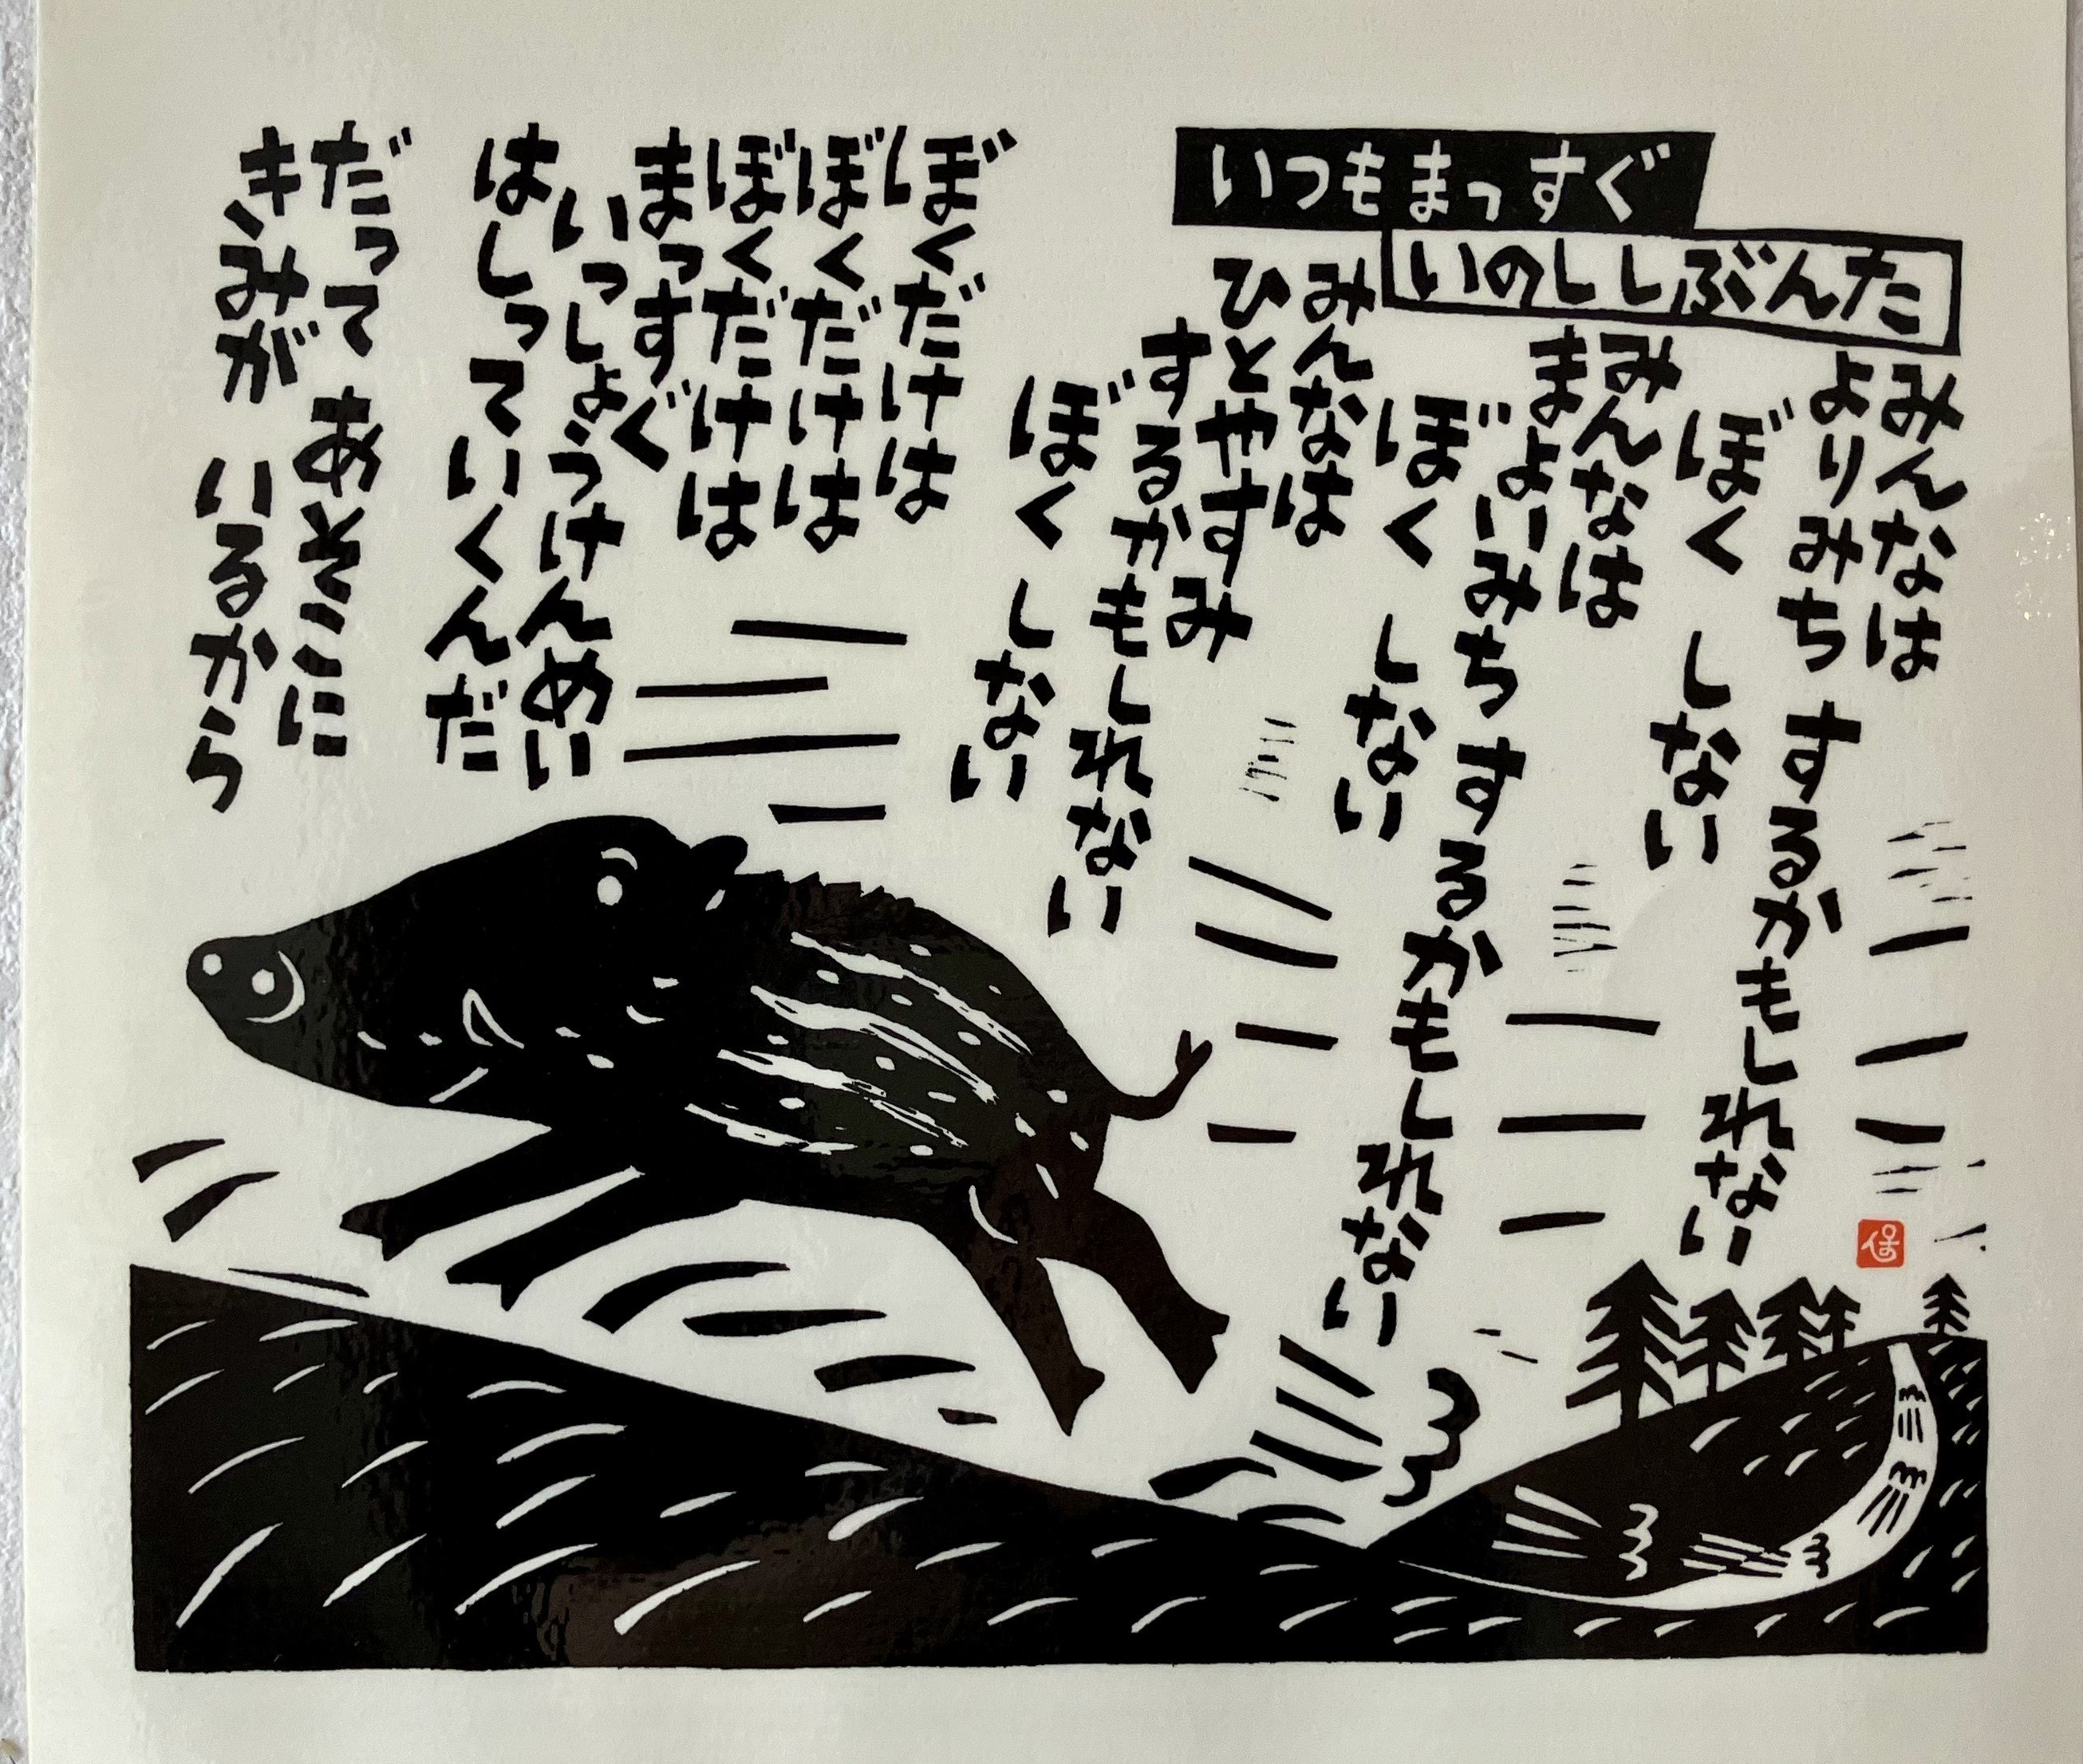 いつもまっすぐ
いのししぶんた
みんなは
よりみち するかもしれない
ぼく しない
みんなは
まよいみち するかもしれない
ぼく しない
みんなは
ひとやすみ
するかもしれない
ぼく しない
ぼくだけは
ぼくだけは
ぼくだけは
まっすぐ
いっしょうけんめい
はしっていくんだ
だって あそこに
きみが いるから